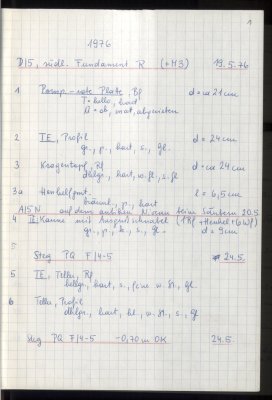 1
1976
D15, südl. Fundament R (→M3) 19.5.76
1 Pomp.-rote Platte, Rf d = ca 21 cm
T = hello, hart
Ü = ob, mat, abgerieben
2 TE, Profil d = 24 cm
gr., p., hart, s., gl.
3 Kragentopf, Rf d = ca 24 cm
dklgr., hart, w. Gl., s. fl
3a Henkelfgmt. l = 6,5 cm
bräunl., p., hart
A15N auf dem antiken Niveau beim Säubern 20.5
4 Kanne mit Ausgussschnabel (1Rf + Henkel + 6Wf)
gr., p., h., s., gl. d = 9cm
5 Steg PQ F/4-5 24.5.
5 TE, Teller, Rf
hellgr., hart, s., feine w. Gl., gl.
6 Teller, Profil
dklgr., hart, kl., w. Gl., s., gl
Steg PQ F/4-5 -0,70 m OK 24.5.